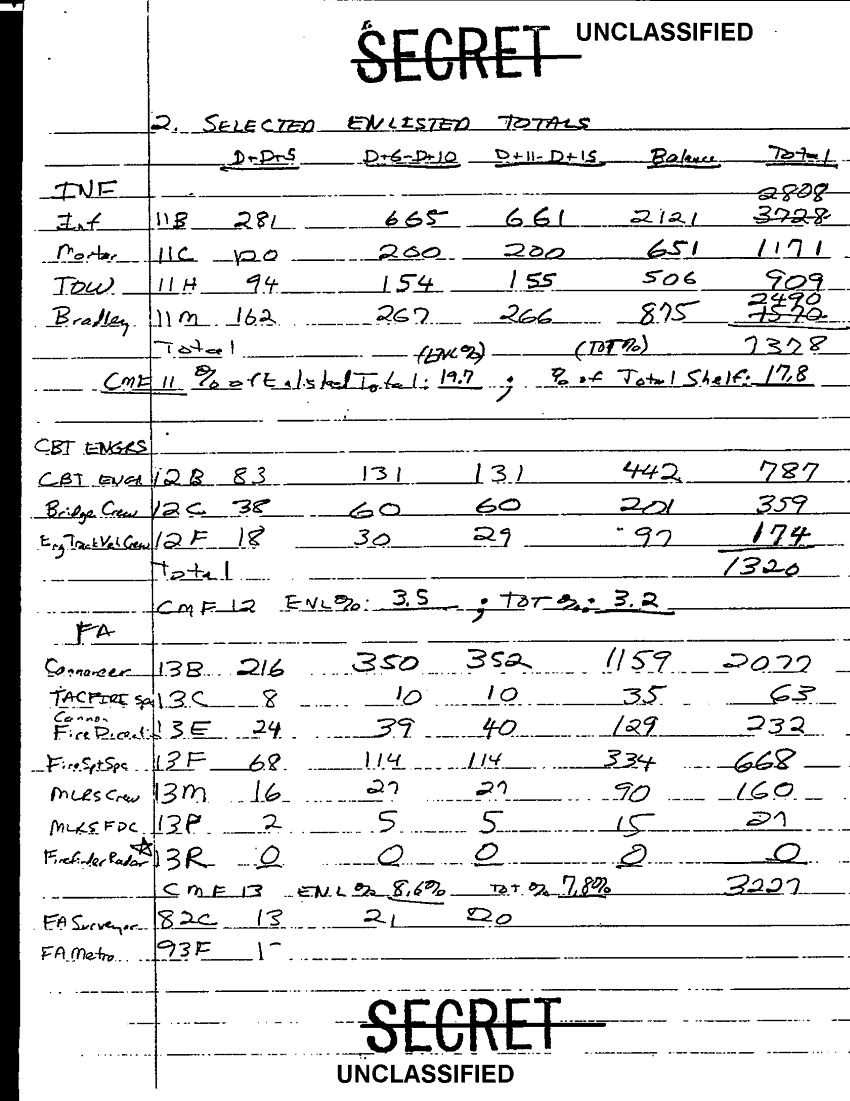 SECRET UNCLASSIFIED
2. SELECTED ENLISTED TOTALS
D-D+5 D+6-D+10 D+11-D+15 Balance Total
INF 2808
Inf 11B 281 665 661 2121 3728
Mortar 11C 120 200 200 651 1171
TOW 11H 94 154 155 506 909
2490
Bradley 11M 162 267 266 875 1570
Total (ENL%) (TOT%) 7378
CMF 11 % of Enlisted Total: 19.7 ; % of Total Shelf: 17.8
CBT ENGRS
CBT ENGR 12B 83 131 131 442 787
Bridge Crew 12C 38 60 60 201 359
Eng Track Veh Crew 12F 18 30 29 97 174
Total 1320
CMF 12 ENL%: 3.5 ; TOT %: 3.2
FA
Cannoneer 13B 216 350 352 1159 2077
TACFIRE Spc 13C 8 10 10 35 63
Cannon
Fire Directi 13E 24 39 40 129 232
Fire Spt Spc 13F 68 114 114 334 668
MLRS Crew 13M 16 27 27 90 160
MLRS FDC 13P 2 5 5 15 27
Firefinder Radar ☆ 13R 0 0 0 0 0
CMF 13 ENL % 8.6% TOT % 7.8% 3227
FA Surveyor 82C 13 21 20
FA Metro 93F 1-
SECRET
UNCLASSIFIED